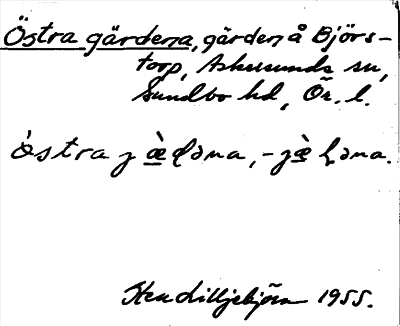 Östra gärdena, gärden å Björs-
torp, Askersunds sn,
Sundbo hd, Ör. l.
östra jæ̀ḍəna, -jæ̀ḷəna.
Sten Lilljebjörn 1955.